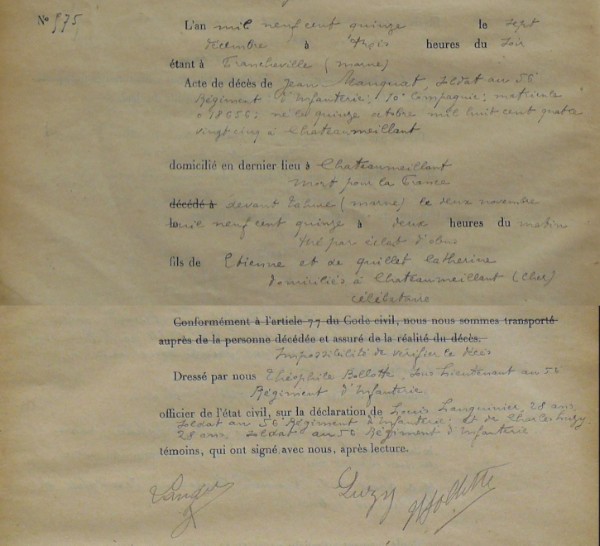 N° 975
L'an mil neuf cent quinze le sept
décembre à trois heures du soir
étant à Francheville (marne)
Acte de décès de Jean Manguat, soldat au 56e
Régiment d'Infanterie; 10e Compagnie; matricule
018656; né le quinze octobre mil huit cent quatre
vingt cinq à Chateaumeillant
domicilié en dernier lieu à Chateaumeillant
mort pour la France
décédé à devant Tahure (marne) le deux novembre
mil neuf cent quinze à deux heures du matin
tué par éclat d'obus
fils de Etienne et de quillet Catherine
domiciliés à Chateaumeillant (Cher)
célibataire
Conformément à l'article 77 du Code civil, nous nous sommes transporté
auprès de la personne décédée et assuré de la réalité du décès.
Impossibilité de vérifier le décès
Dressé par nous Théophile Bollotte, Sous Lieutenant au 56
Régiment d'Infanterie
officier de l'état civil, sur la déclaration de Louis 28 ans,
soldat au 56e Régiment d'infanterie; et de Charles Luzy
28 ans, soldat au 56 Régiment d'Infanterie
témoins, qui ont signé avec nous, après lecture.
Luzy